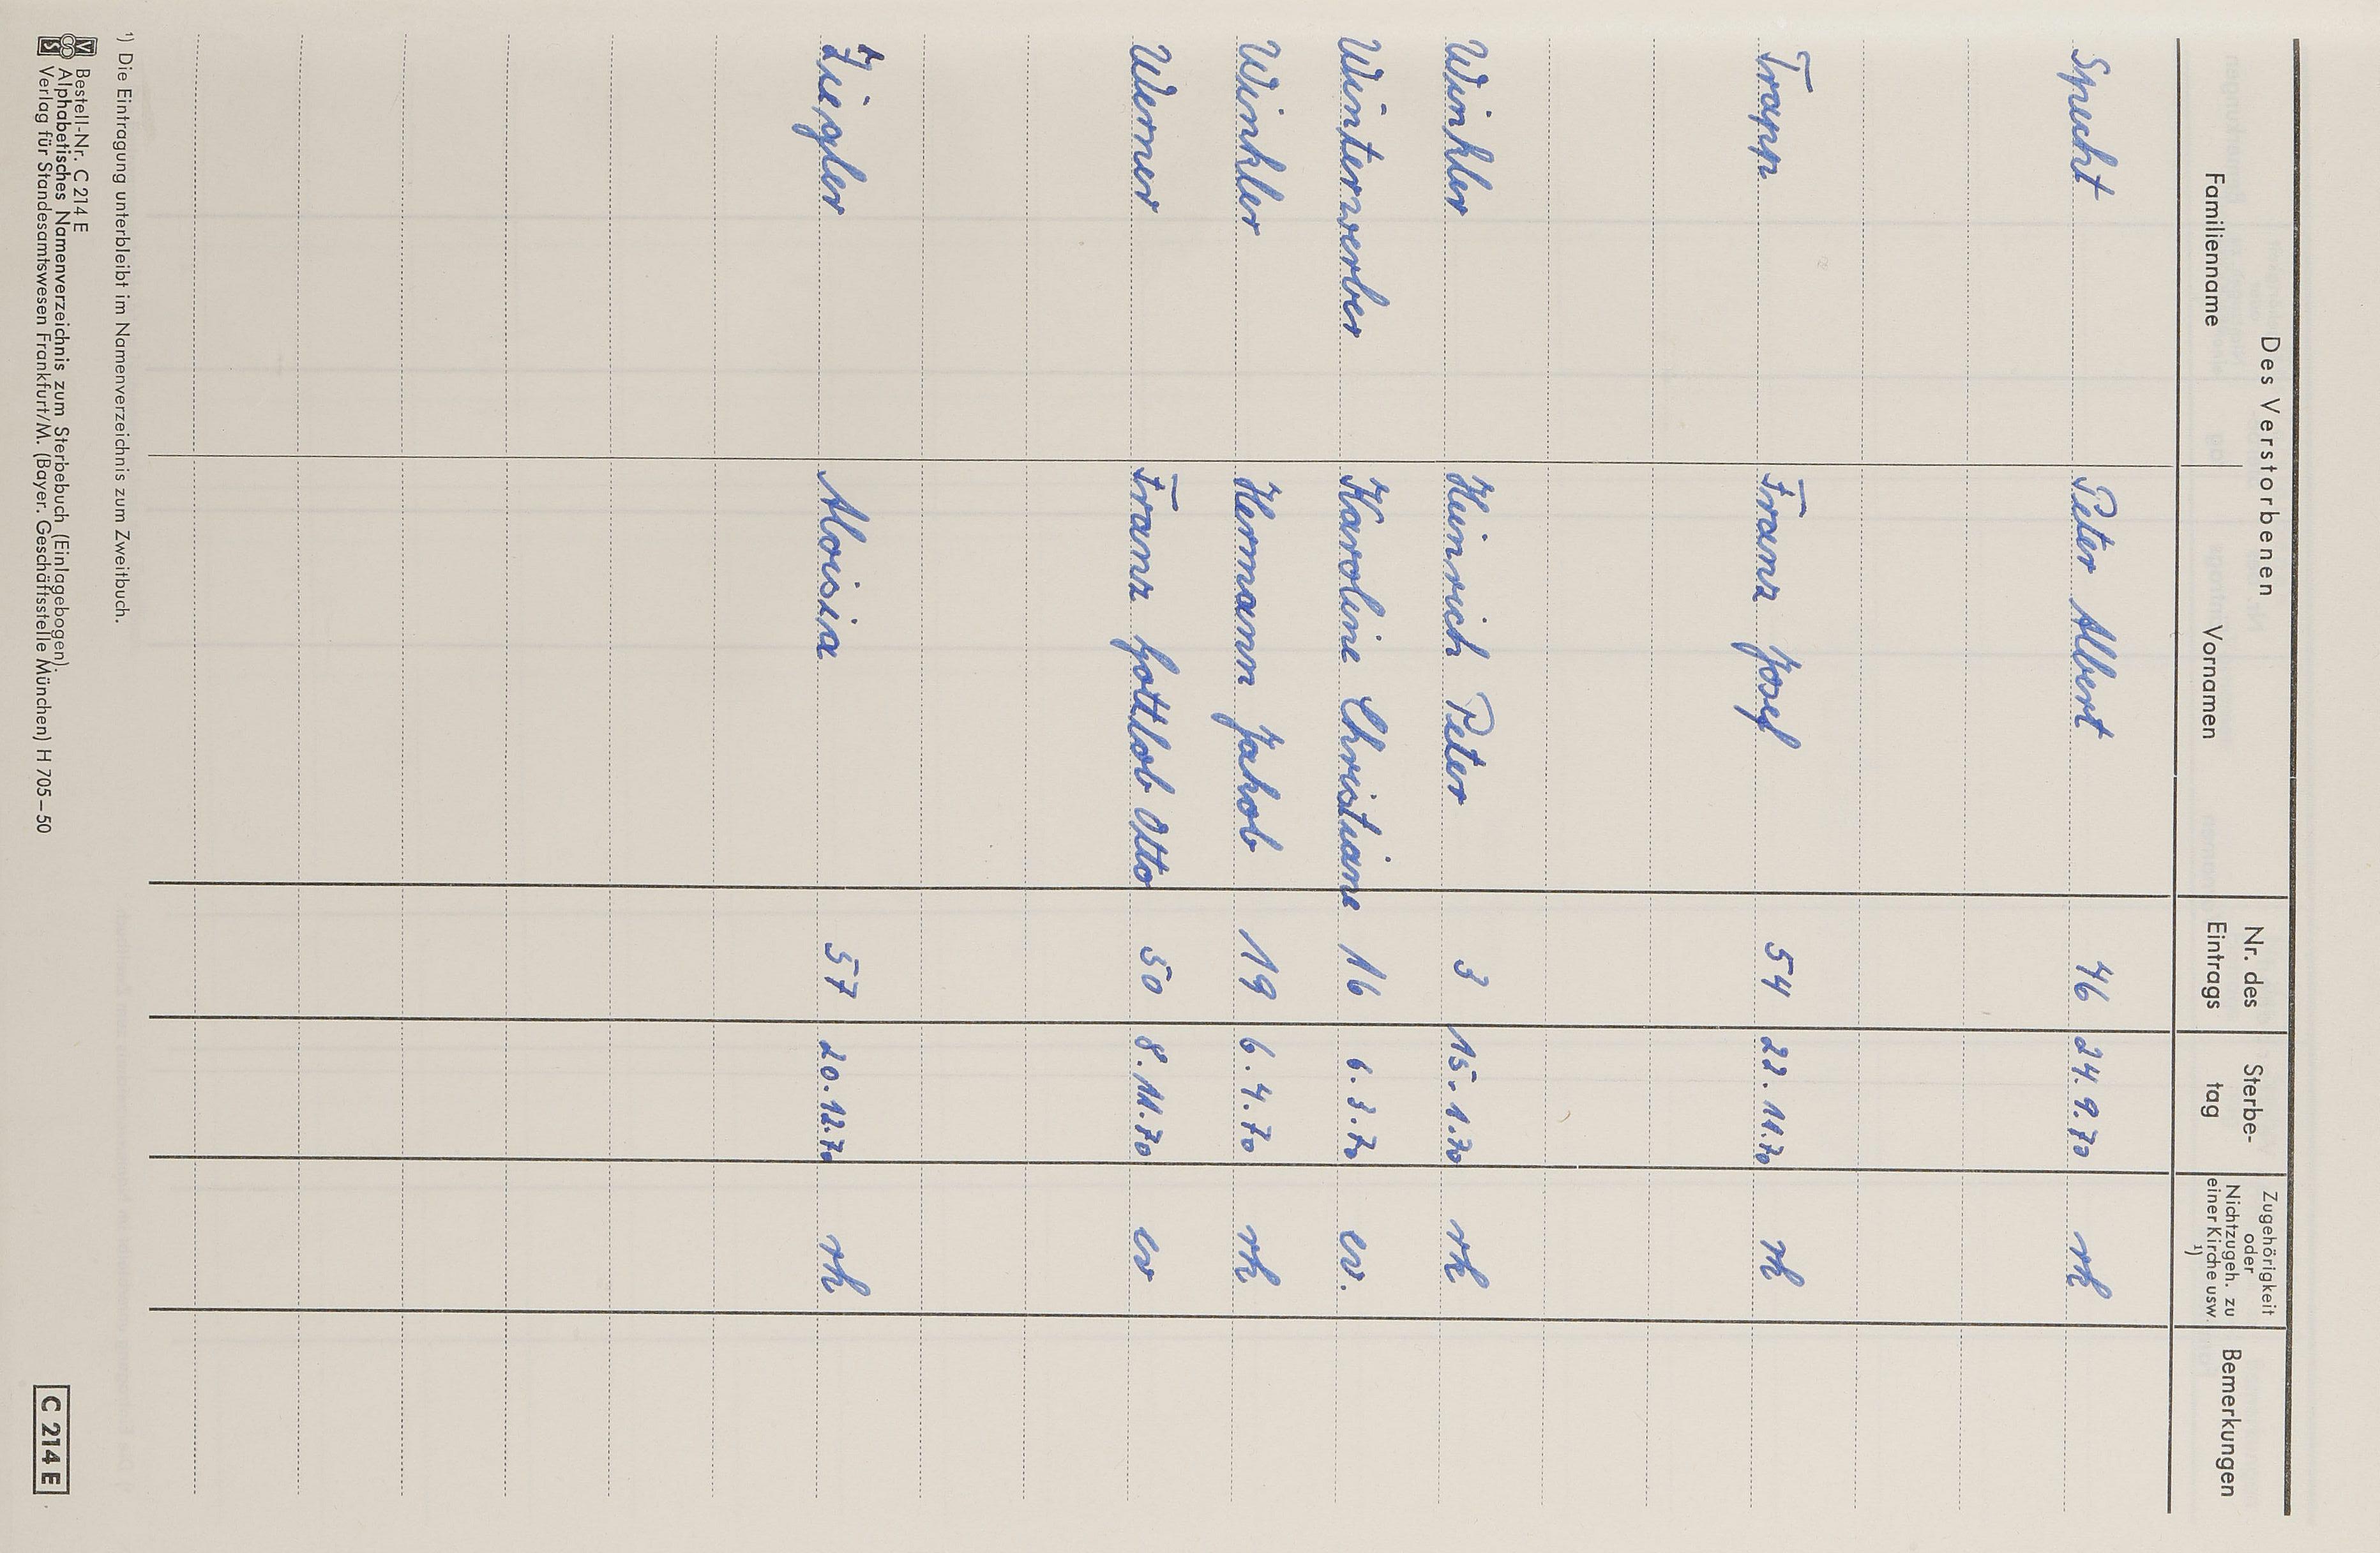 Des Verstorbenen
Familienname Vornamen Nr. des Eintrags Sterbe-tag Zugehörigkeit oder Nichtzugeh. zu einer Kirche usw. ¹) Bemerkungen
Specht Peter Albert 46 24.9.70 rk
Trapp Franz Josef 54 22.11.70 rk
Winkler Heinrich Peter 3 15.1.70 rk
Winterwerber Karoline Christiane 16 6.3.70 ev.
Winkler Hermann Jakob 19 6.4.70 rk
Werner Franz Gottlob Otto 50 8.11.70 ev
Ziegler Aloisia 57 20.12.70 rk
¹) Die Eintragung unterbleibt im Namenverzeichnis zum Zweitbuch.
Bestell-Nr. C 214 E
Alphabetisches Namenverzeichnis zum Sterbebuch (Einlagebogen).
Verlag für Standesamtswesen Frankfurt/M. (Bayer. Geschäftsstelle München) H 705–50
C 214 E